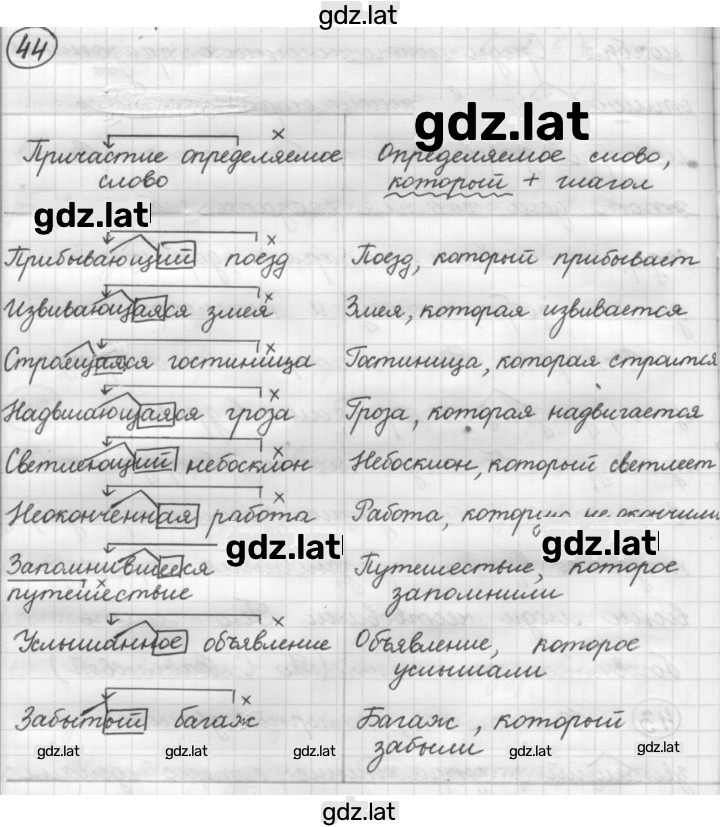 gdz.lat
44
gdz.lat
Причастие определяемое
слово
Определяемое слово,
который + глагол
gdz.lat
Прибывающий поезд
Поезд, который прибывает
Извивающаяся змея
Змея, которая извивается
Строящаяся гостиница
Гостиница, которая строится
Надвигающаяся гроза
Гроза, которая надвигается
Светлеющий небосклон
Небосклон, который светлеет
Неоконченная работа
Работа, которую не окончили
gdz.lat
gdz.lat
Запомнившееся
путешествие
Путешествие, которое
запомнили
Услышанное объявление
Объявление, которое
услышали
Забытый багаж
Багаж, который
забыли
gdz.lat
gdz.lat
gdz.lat
gdz.lat
gdz.lat
gdz.lat